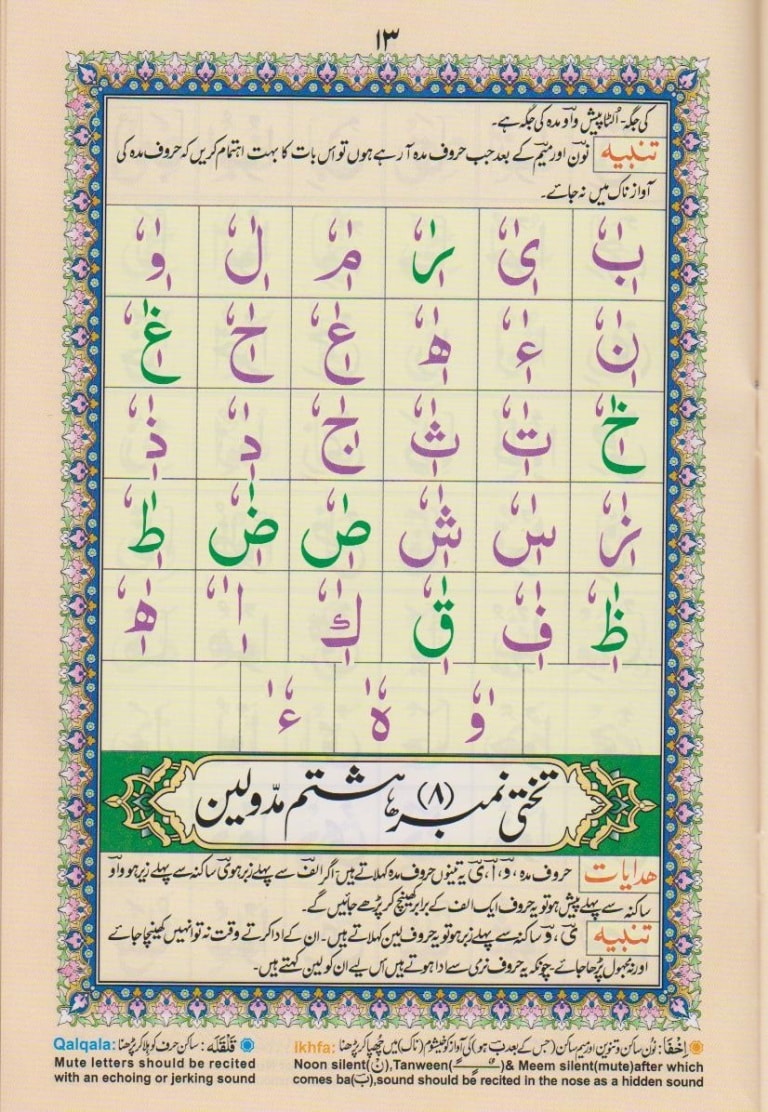 ١٣
کی جگہ۔ اُلٹا پیش واؤ مدہ کی جگہ ہے۔
تنبیہ نون اور میم کے بعد جب حروف مدہ آ رہے ہوں تو اس بات کا بہت اہتمام کریں کہ حروف مدہ کی
آواز ناک میں نہ جائے۔
بٰٖٗ یٰٖٗ رٰٖٗ مٰٖٗ لٰٖٗ وٰٖٗ
نٰٖٗ ءٰٖٗ هٰٖٗ عٰٖٗ حٰٖٗ غٰٖٗ
خٰٖٗ تٰٖٗ ثٰٖٗ جٰٖٗ دٰٖٗ ذٰٖٗ
زٰٖٗ سٰٖٗ شٰٖٗ صٰٖٗ ضٰٖٗ طٰٖٗ
ظٰٖٗ فٰٖٗ قٰٖٗ كٰٖٗ اٰٖٗ هٰٖٗ
وٰٗ هٰ ءٰٗ
تختی نمبر (٨) ہشتم مدّ ولین
ھدایات حروف مدہ، و، ا، ی یہ تینوں حروف مدہ کہلاتے ہیں اگر الف سے پہلے زبر ہو ی ساکنہ سے پہلے زیر ہو واؤ
ساکنہ سے پہلے پیش ہو تو یہ حروف ایک الف کے برابر کھینچ کر پڑھے جائیں گے۔
تنبیہ ی، و ساکنہ سے پہلے زبر ہو تو یہ حروف لین کہلاتے ہیں۔ ان کے ادا کرتے وقت نہ تو انہیں کھینچا جائے
اور نہ مجہول پڑھا جائے۔ چونکہ یہ حروف نرمی سے ادا ہوتے ہیں اس لیے ان کو لین کہتے ہیں۔
Ikhfa: اِخْفَا: نون ساکن و تنوین اور میم ساکن (جس کے بعد ب ہو) کی آواز کو خیشوم (ناک) میں چُھپا کر پڑھنا
Noon silent(نْ),Tanween(ـًـٍـٌ)& Meem silent(mute)after which
comes ba(ب),sound should be recited in the nose as a hidden sound
Qalqala: قَلْقَلَه: ساکن حرف کو ہلا کر پڑھنا
Mute letters should be recited
with an echoing or jerking sound